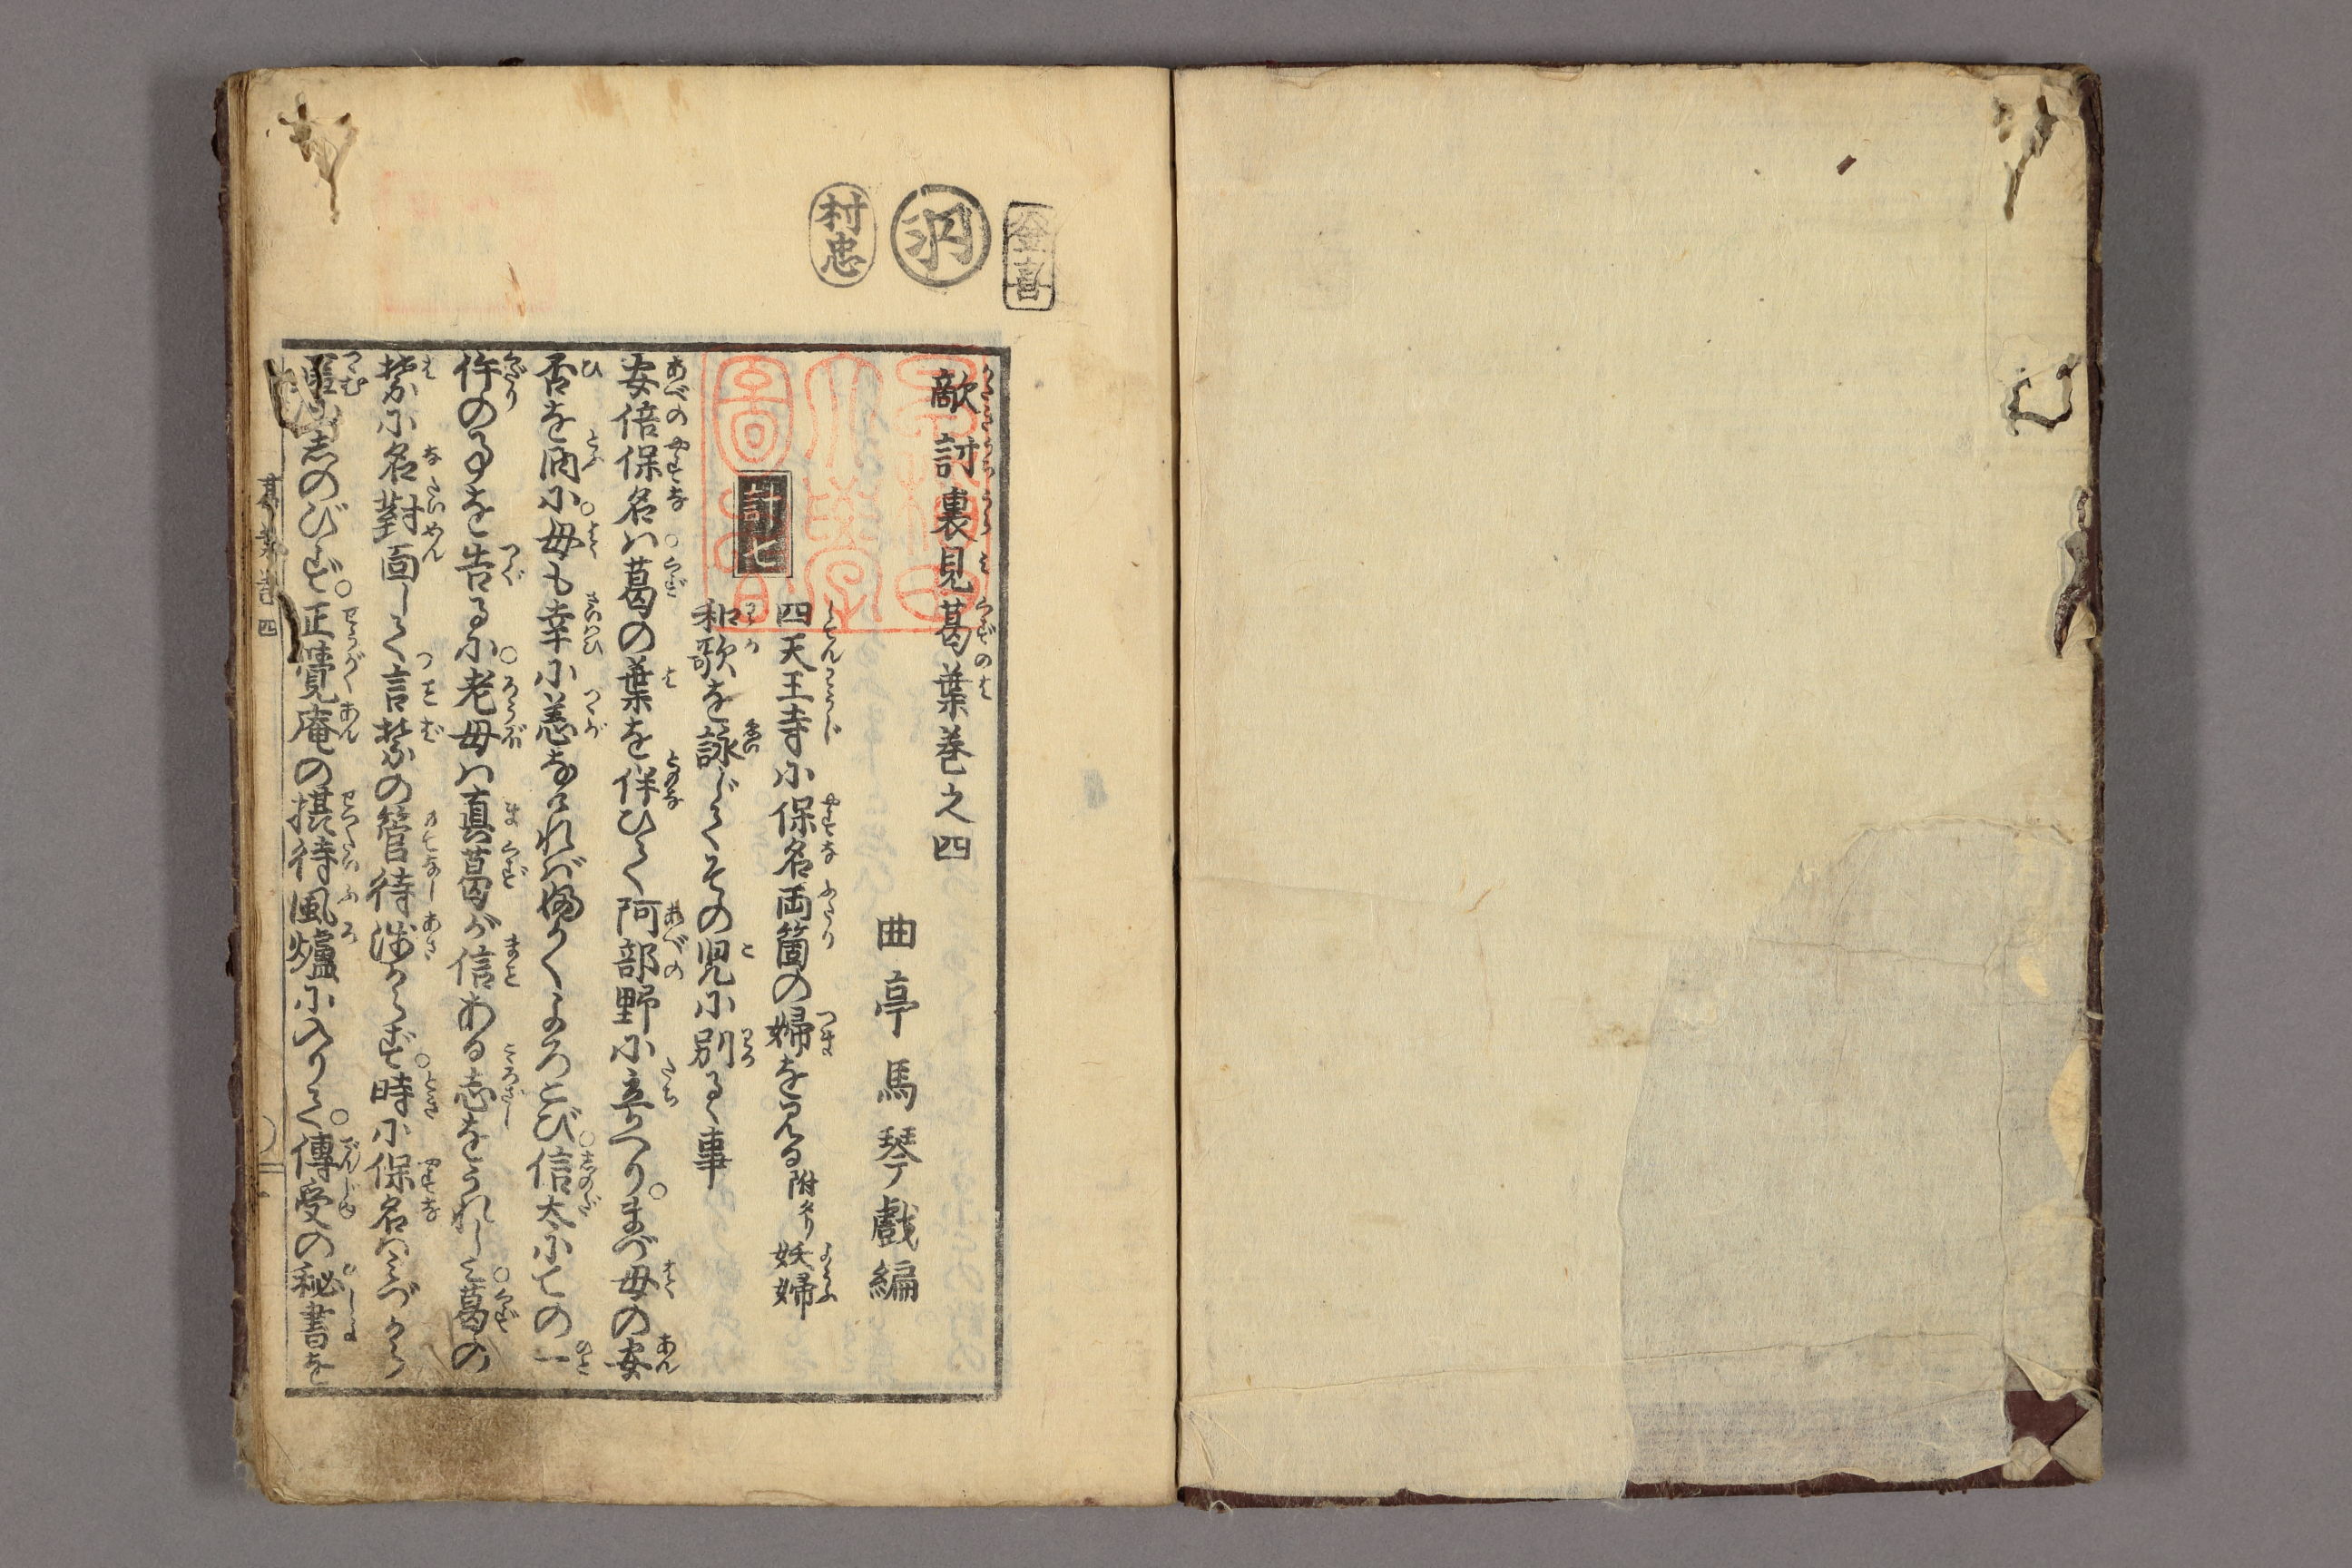 金喜
村忠
早稲田
大學
圖書
敵討裏見葛葉巻之四
曲亭馬琴戯編
四天王寺に保名両箇の婦を見る附タリ妖婦
和歌を詠じてその児に別るゝ事
安倍保名は葛の葉を伴ひて阿部野に立かへり○まづ母の安
否を問に○母も幸に恙なければよろこび○信太にての一
件の事を告るに○老母は真葛が信ある志をうれしく○葛の
葉に名對面して言葉の管待浅からず○時に保名はみづから
しのびず○正覺庵の摂待風爐に入りて○傳受の秘書を
葛葉 四